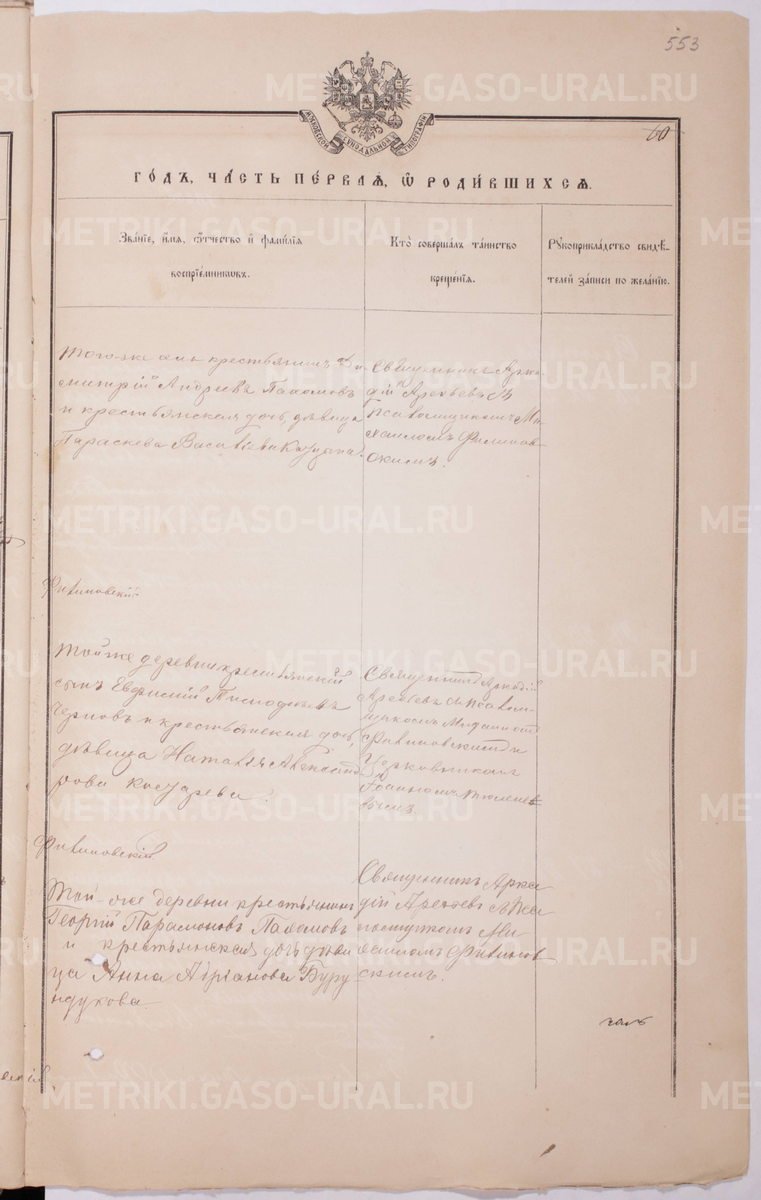 553
60
МОСКОВСКОЙ СѴНОДАЛЬНОЙ ТИПОГРАФІИ
ГО́ДЪ, ЧА́СТЬ ПЕ́РВАѦ, Ѿ РОДИ́ВШИХСѦ.
Зва́нїе, и́мѧ, ѻ҆́тчество и҆ фами́лїѧ
воспрїе́мникѡвъ.
Кто̀ соверша́лъ та́инство
креще́нїѧ.
Рꙋкоприкла́дство свидѣ́-
телей за́писи по жела́нїю.
того-же села крестьянинъ Ди-
митрій Андреевъ Пахомовъ
и крестьянская дочь, дѣвица
Параскева Васильева
Священникъ Арка-
дій Арефьевъ съ
Псаломщикомъ Ми-
хаиломъ Филинов-
скимъ.
Филиновскій
Той же деревни крестьянскій
сынъ Евфимій
Черновъ и крестьянская дочь,
дѣвица Наталія Александ
рова Косарева.
Священникъ Аркадій
Арефьевъ съ псалом-
щикомъ Михаиломъ
Филиновскимъ и
Церковникомъ
Іоанномъ Тюлене-
вымъ
Филиновскій
Той-же деревни крестьянинъ
Георгій Парамоновъ Пахомовъ
и крестьянская дочь дѣви
ца Анна Адріанова Буру
ндукова.
Священникъ Арка
дій Арефьевъ съ Пса
ломщикомъ Ми
хаиломъ Филинов
скимъ.
METRIKI.GASO-URAL.RU